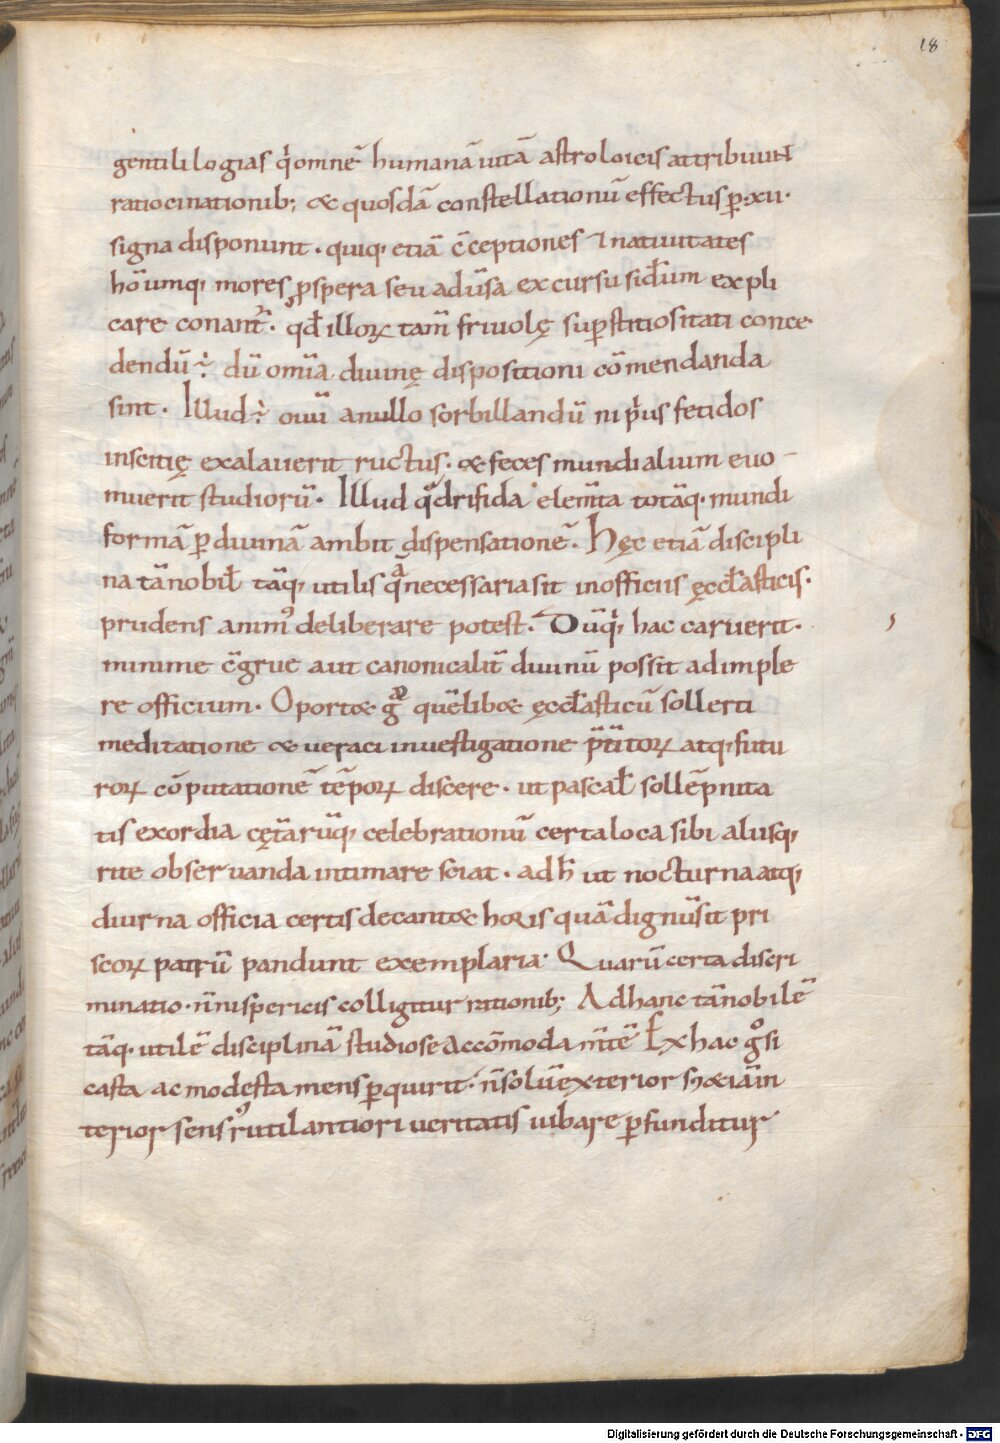 18
gentililogias qͥ omnē humanā uitā astroloicis attribuunt
ratiocinationib; & quosdā constellationū effectus ꝑ ·xii·
signa disponunt · quiq; etiā c̄ceptiones ⁊ natiuitates
hōumq; mores ꝓspera seu aduˉsa ex cursu sideɽum expli
care conant̄ · qđ illoꝝ tam̄ friuolę suꝑstitiositati conce
dendū ÷ dū om̄ia diuinę dispositioni cōmendanda
sint · Illud ÷ ouū a nullo sorbillandū ni pͥus fetidos
inscitię exalauerit ructus · & feces mundialium euo
muerit studiorū · Illud qᷓdrifida elem̄ta totāq· mundi
formā ꝑ diuinā ambit dispensationē · Hęc etiā discipli
na tā nobił tāq; utilis qᷓ necessaria sit in officiis ęccłasticis ·
prudens animꝰ deliberare potest · Dūqͥ; hac caruerit ·
minime c̄grue aut canonicalit̄ diuinū possit adimple
re officium · Oport& gͦ quēlib& ęccłasticū sollerti
meditatione & ueraci inuestigatione p̄t̄itoꝝ atq; futu
roꝝ cōputationē tēpoꝝ discere · ut pascał sollēpnita
tis exordia cęt̄arūq; celebrationū certa loca sibi aliisq;
rite obseruanda intimare sciat · ad h̄ ut nocturna atq;
diurna officia certis decant& horis quā dignū sit pri
scoꝝ patrū pandunt exemplaria · Quarū certa discri
minatio · n̄nisi spericis colligitur rationib; Ad hanc tā nobilē
tāq· utilē disciplinā studiose accōmoda m̄tē Ex hac gͦ si
casta ac modesta mens ꝑquirit · n̄ solū exterior s; &iā in
terior sensꝰ rutilantiori ueritatis iubare ꝑfunditur
Digitalisierung gefördert durch die Deutsche Forschungsgemeinschaft - DFG